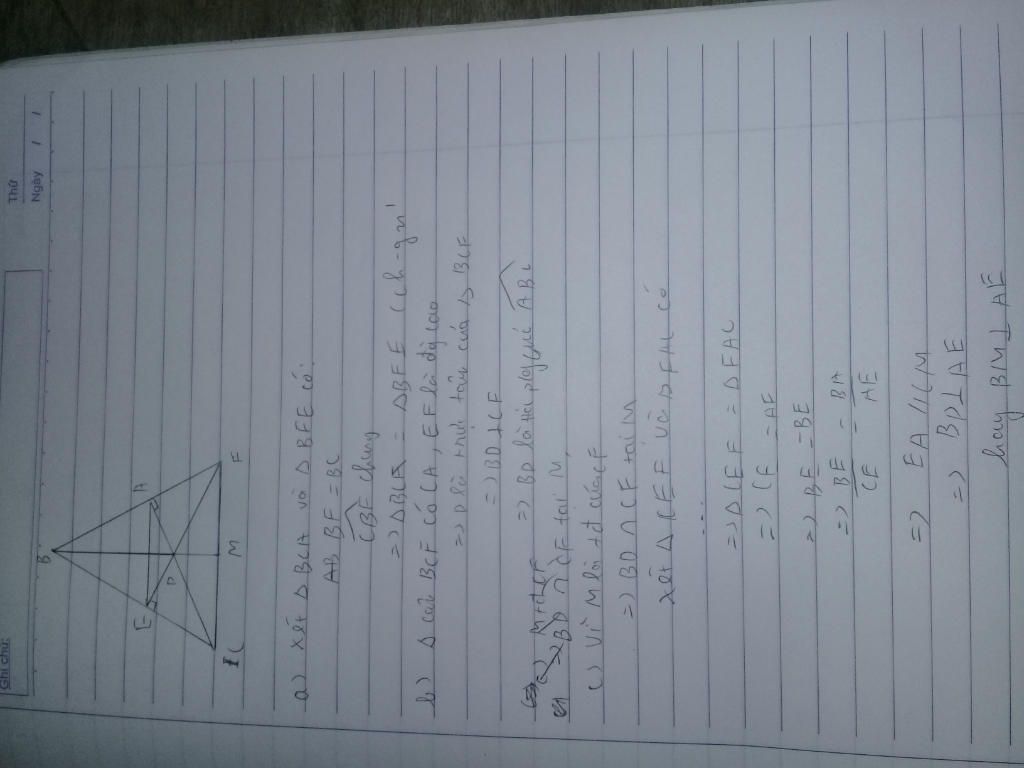 Ghi chú:
Thứ
Ngày / /
B
E
A
D
C
M
F
a) Xét Δ BCA và Δ BFE có:
AB BF = BC
CBF chung
=> Δ BCA = Δ BFE (ch-gn)
b) Δ cân BCF có CA, EF là độ cao
=> D là trực tâm của Δ BCF
=> BD ⊥ CF
=> BD là tia p/g góc ABC
c) Vì M là tđ của CF
=> BD ∩ CF tại M
Xét Δ CEF và Δ FAC có
...
=> Δ CEF = Δ FAC
=> CE = AF
=> BE = BE
=> BE = BA
CE AE
=> EA // CM
=> BD ⊥ AE
hay BM ⊥ AE